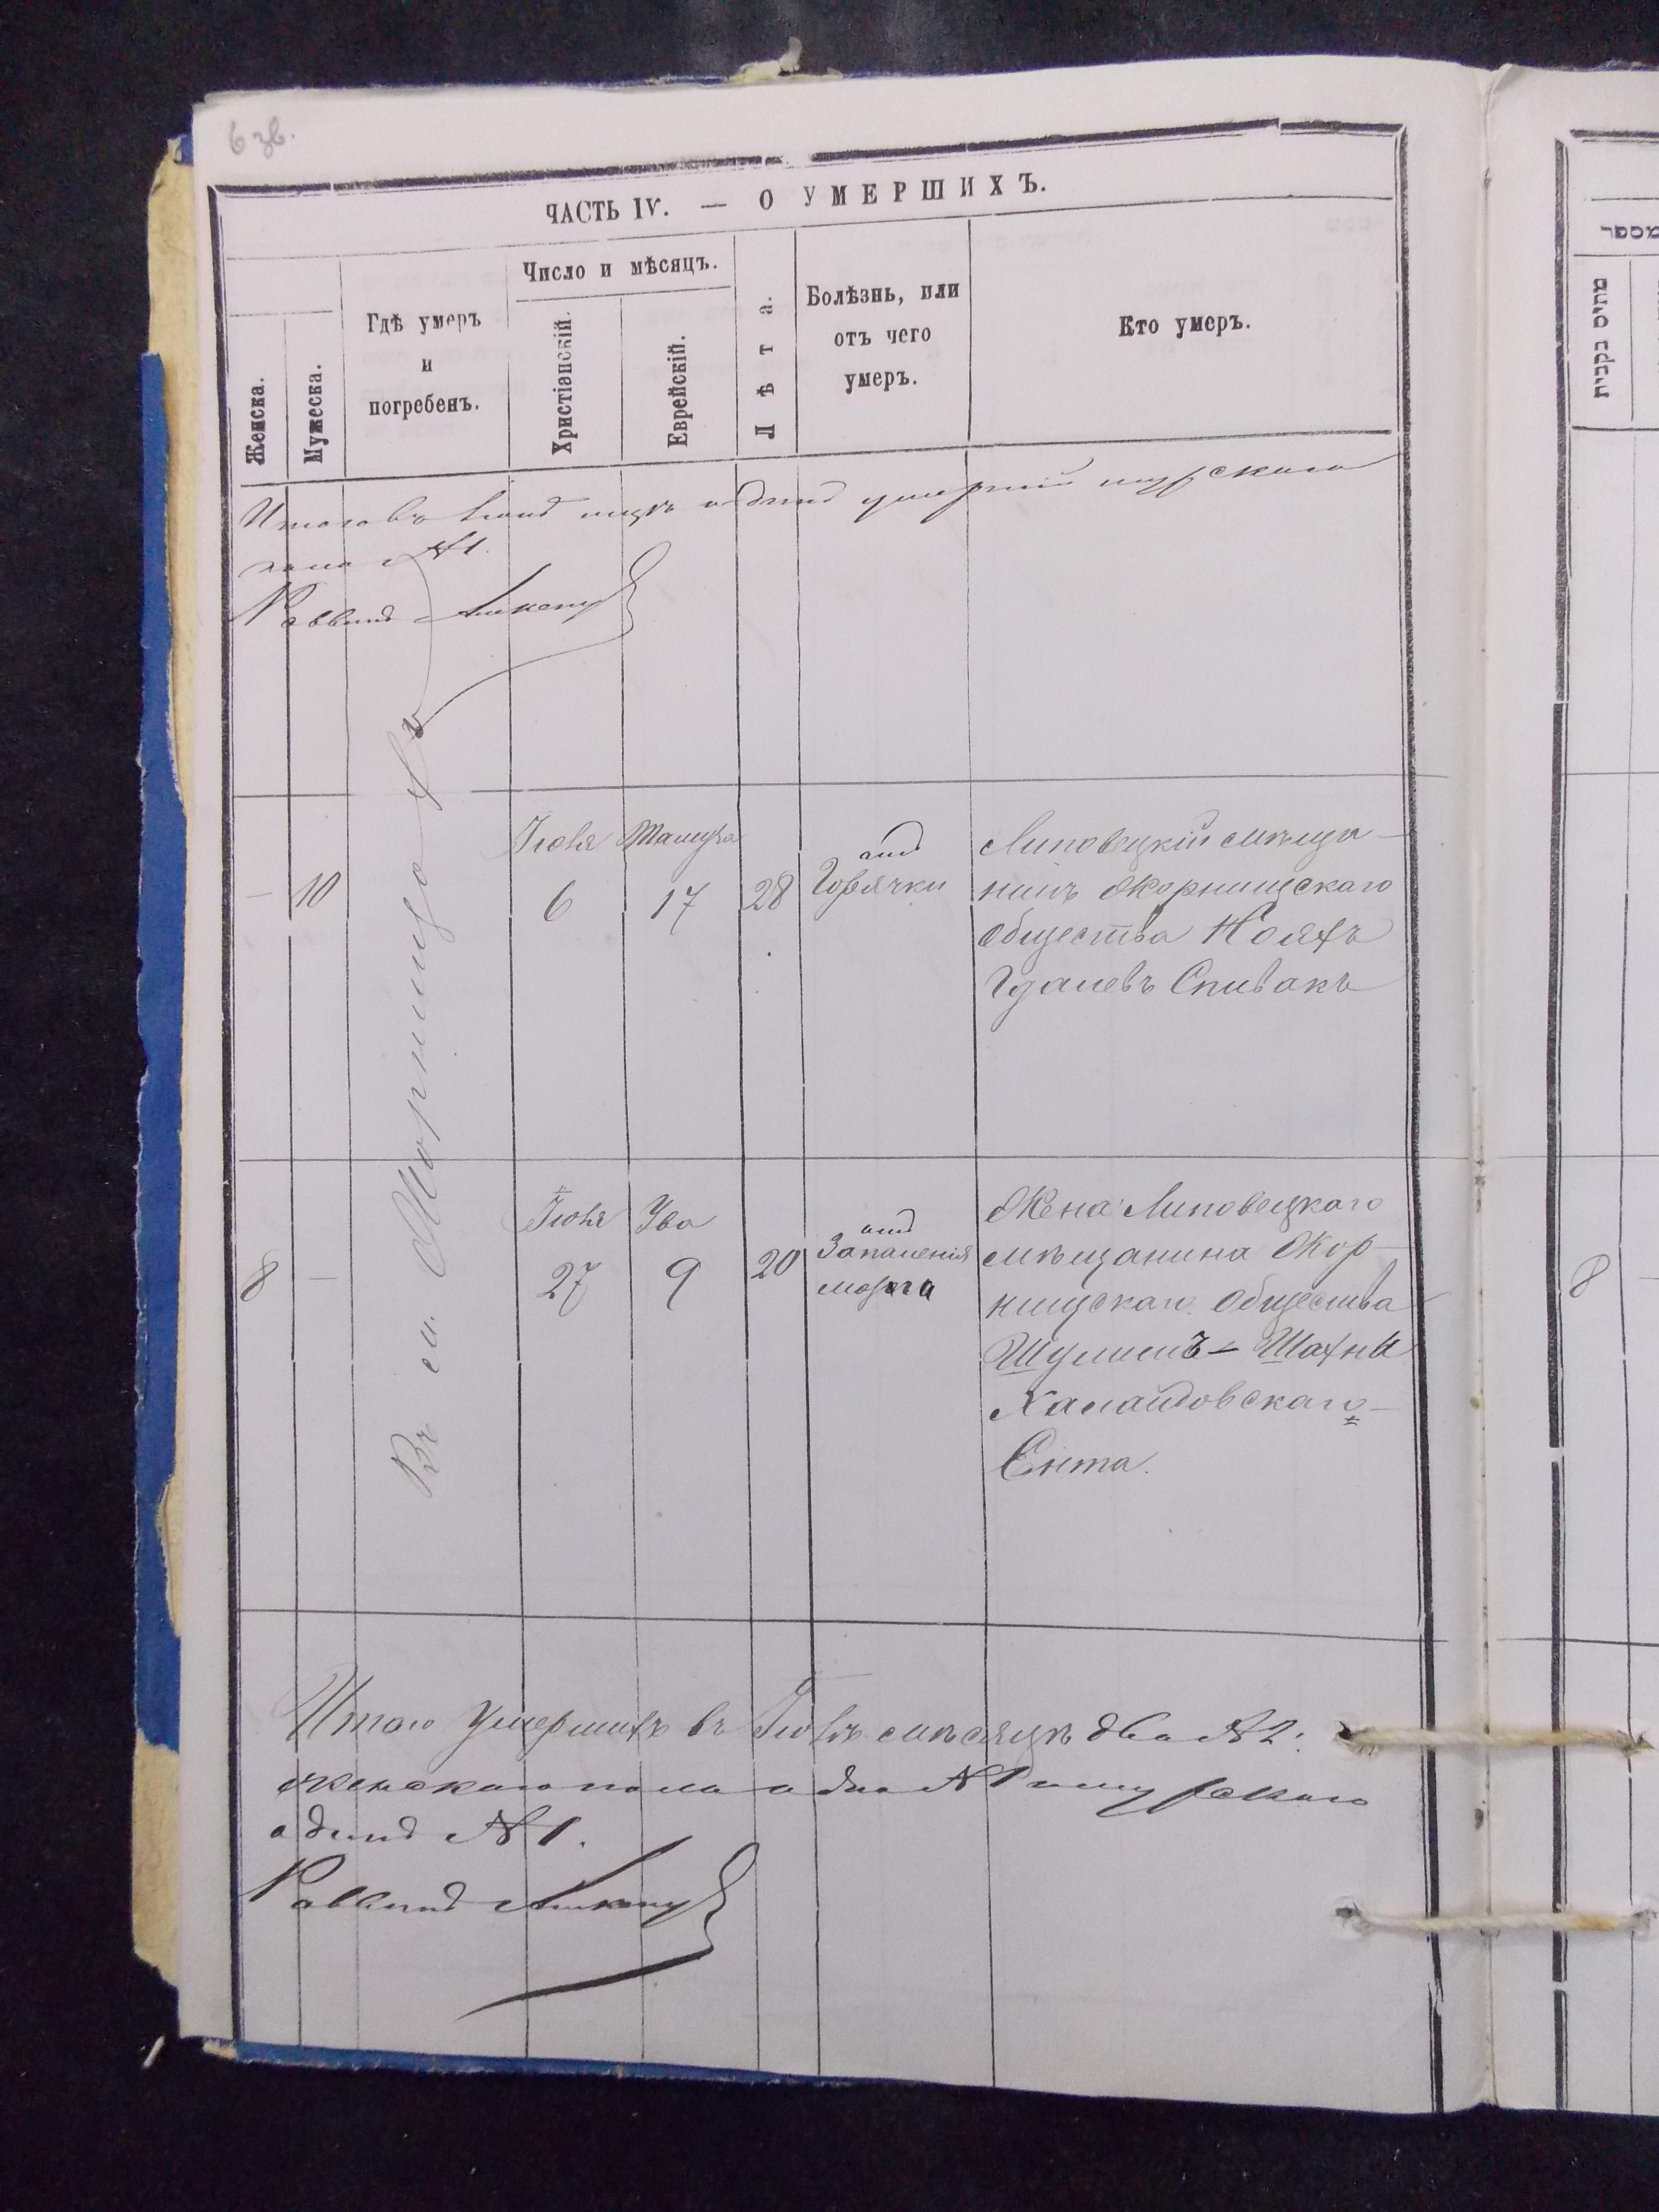 6 зв.
ЧАСТЬ IV. — О УМЕРШИХЪ.
Женска.
Мужеска.
Гдѣ умеръ
и
погребенъ.
Число и мѣсяцъ.
Христіанскій.
Еврейскій.
Лѣта.
Болѣзнь, или
отъ чего
умеръ.
Кто умеръ.
מספר
Итого въ одинъ умершій мужскаго
пола №1.
Раввинъ
Въ м. Жорнище
—
10
Іюля
6
Тамуза
17
28
отъ
Горячки
Липовецкій мѣща-
нинъ Жорнищскаго
Общества Нояхъ
Гдалевъ Спивакъ
8
—
Іюля
27
Ува
9
20
отъ
Запаленія
мозга
Жена Липовецкаго
мѣщанина Жор-
нищскаго Общества
Шулимъ-Шахны
Халаидовскаго-
Ента.
8
Итого умершихъ въ Іюлѣ мѣсяцѣ два №2:
женскаго пола одна №1 и мужскаго
одинъ №1.
Раввинъ